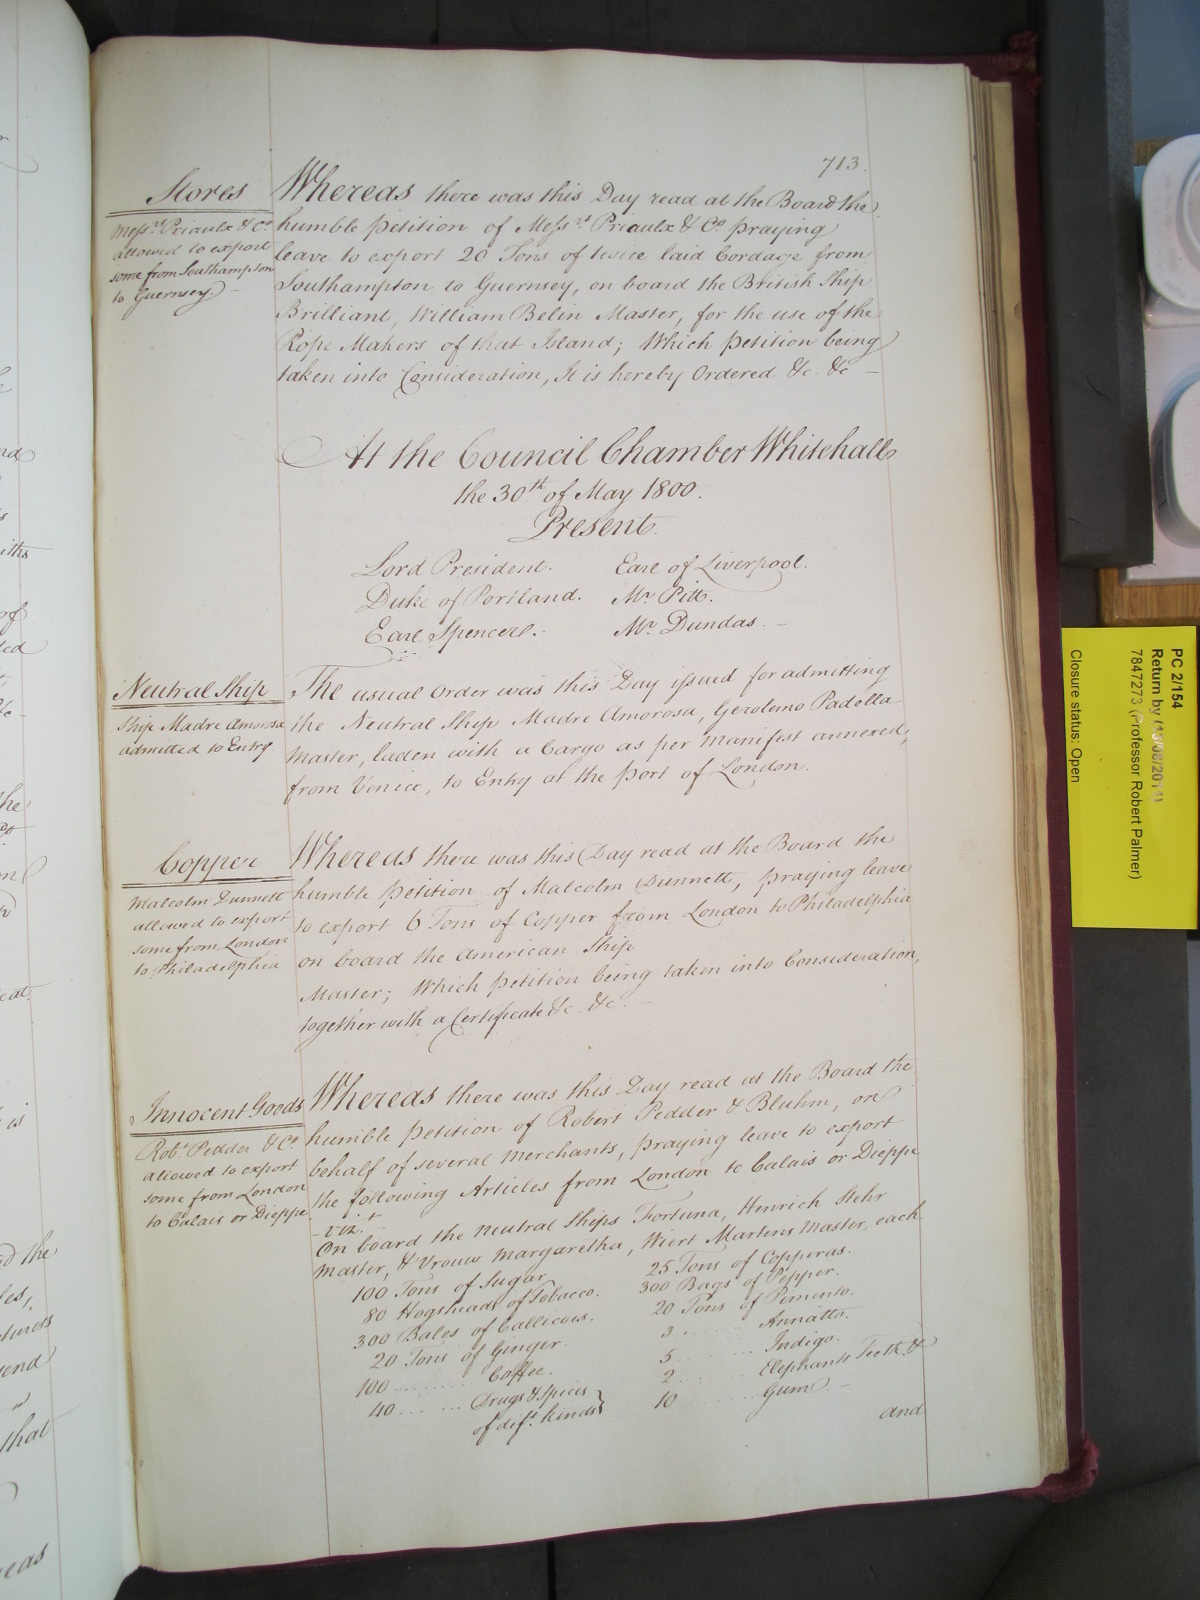 713.
Stores
Messrs. Priaulx & Co.
allowed to export
some from Southampton
to Guernsey. –
Whereas there was this Day read at the Board the
humble Petition of Messrs. Priaulx & Co. praying
leave to export 20 Tons of twice laid Cordage from
Southampton to Guernsey, on board the British Ship
Brilliant, William Belin Master, for the use of the
Rope Makers of that Island; Which Petition being
taken into Consideration, It is hereby Ordered &c. &c –
At the Council Chamber Whitehall
the 30th of May 1800.
Present.
Lord President. Earl of Liverpool.
Duke of Portland. Mr. Pitt.
Earl Spencer. Mr. Dundas. –
Neutral Ship
Ship Madre Amorosa
admitted to Entry
The usual Order was this Day issued for admitting
the Neutral Ship Madre Amorosa, Gerolemo Padella
Master, laden with a Cargo as per Manifest annexed,
from Venice, to Entry at the Port of London.
Copper
Malcolm Dunnett
allowed to export
some from London
to Philadelphia
Whereas there was this Day read at the Board the
humble Petition of Malcolm Dunnett, praying leave
to export 6 Tons of Copper from London to Philadelphia
on board the American Ship
Master; Which Petition being taken into Consideration,
together with a Certificate &c. &c. –
Innocent Goods
Robt. Pedder & Co.
allowed to export
some from London
to Calais or Dieppe
Whereas there was this Day read at the Board the
humble Petition of Robert Pedder & Bluhm, on
behalf of several Merchants, praying leave to export
the following Articles from London to Calais or Dieppe
vizt.
On board the Neutral Ships Fortuna, Henrich Stehr
Master, & Vrouw Margaretha, Wiert Martens Master, each
100 Tons of Sugar 25 Tons of Copperas.
80 Hogsheads of Tobacco. 300 Bags of Pepper.
300 Bales of Callicoes. 20 Tons of Pimento.
20 Tons of Ginger. 3 ...... Annatto.
100 ........ Coffee. 5 ...... Indigo.
40 ........ Drugs & Spices 2 ...... Elephants Teeth &
of difft. kinds } 10 ...... Gum. –
and
PC 2/154
Return by (15/08/2011)
7847273 (Professor Robert Palmer)
Closure status: Open